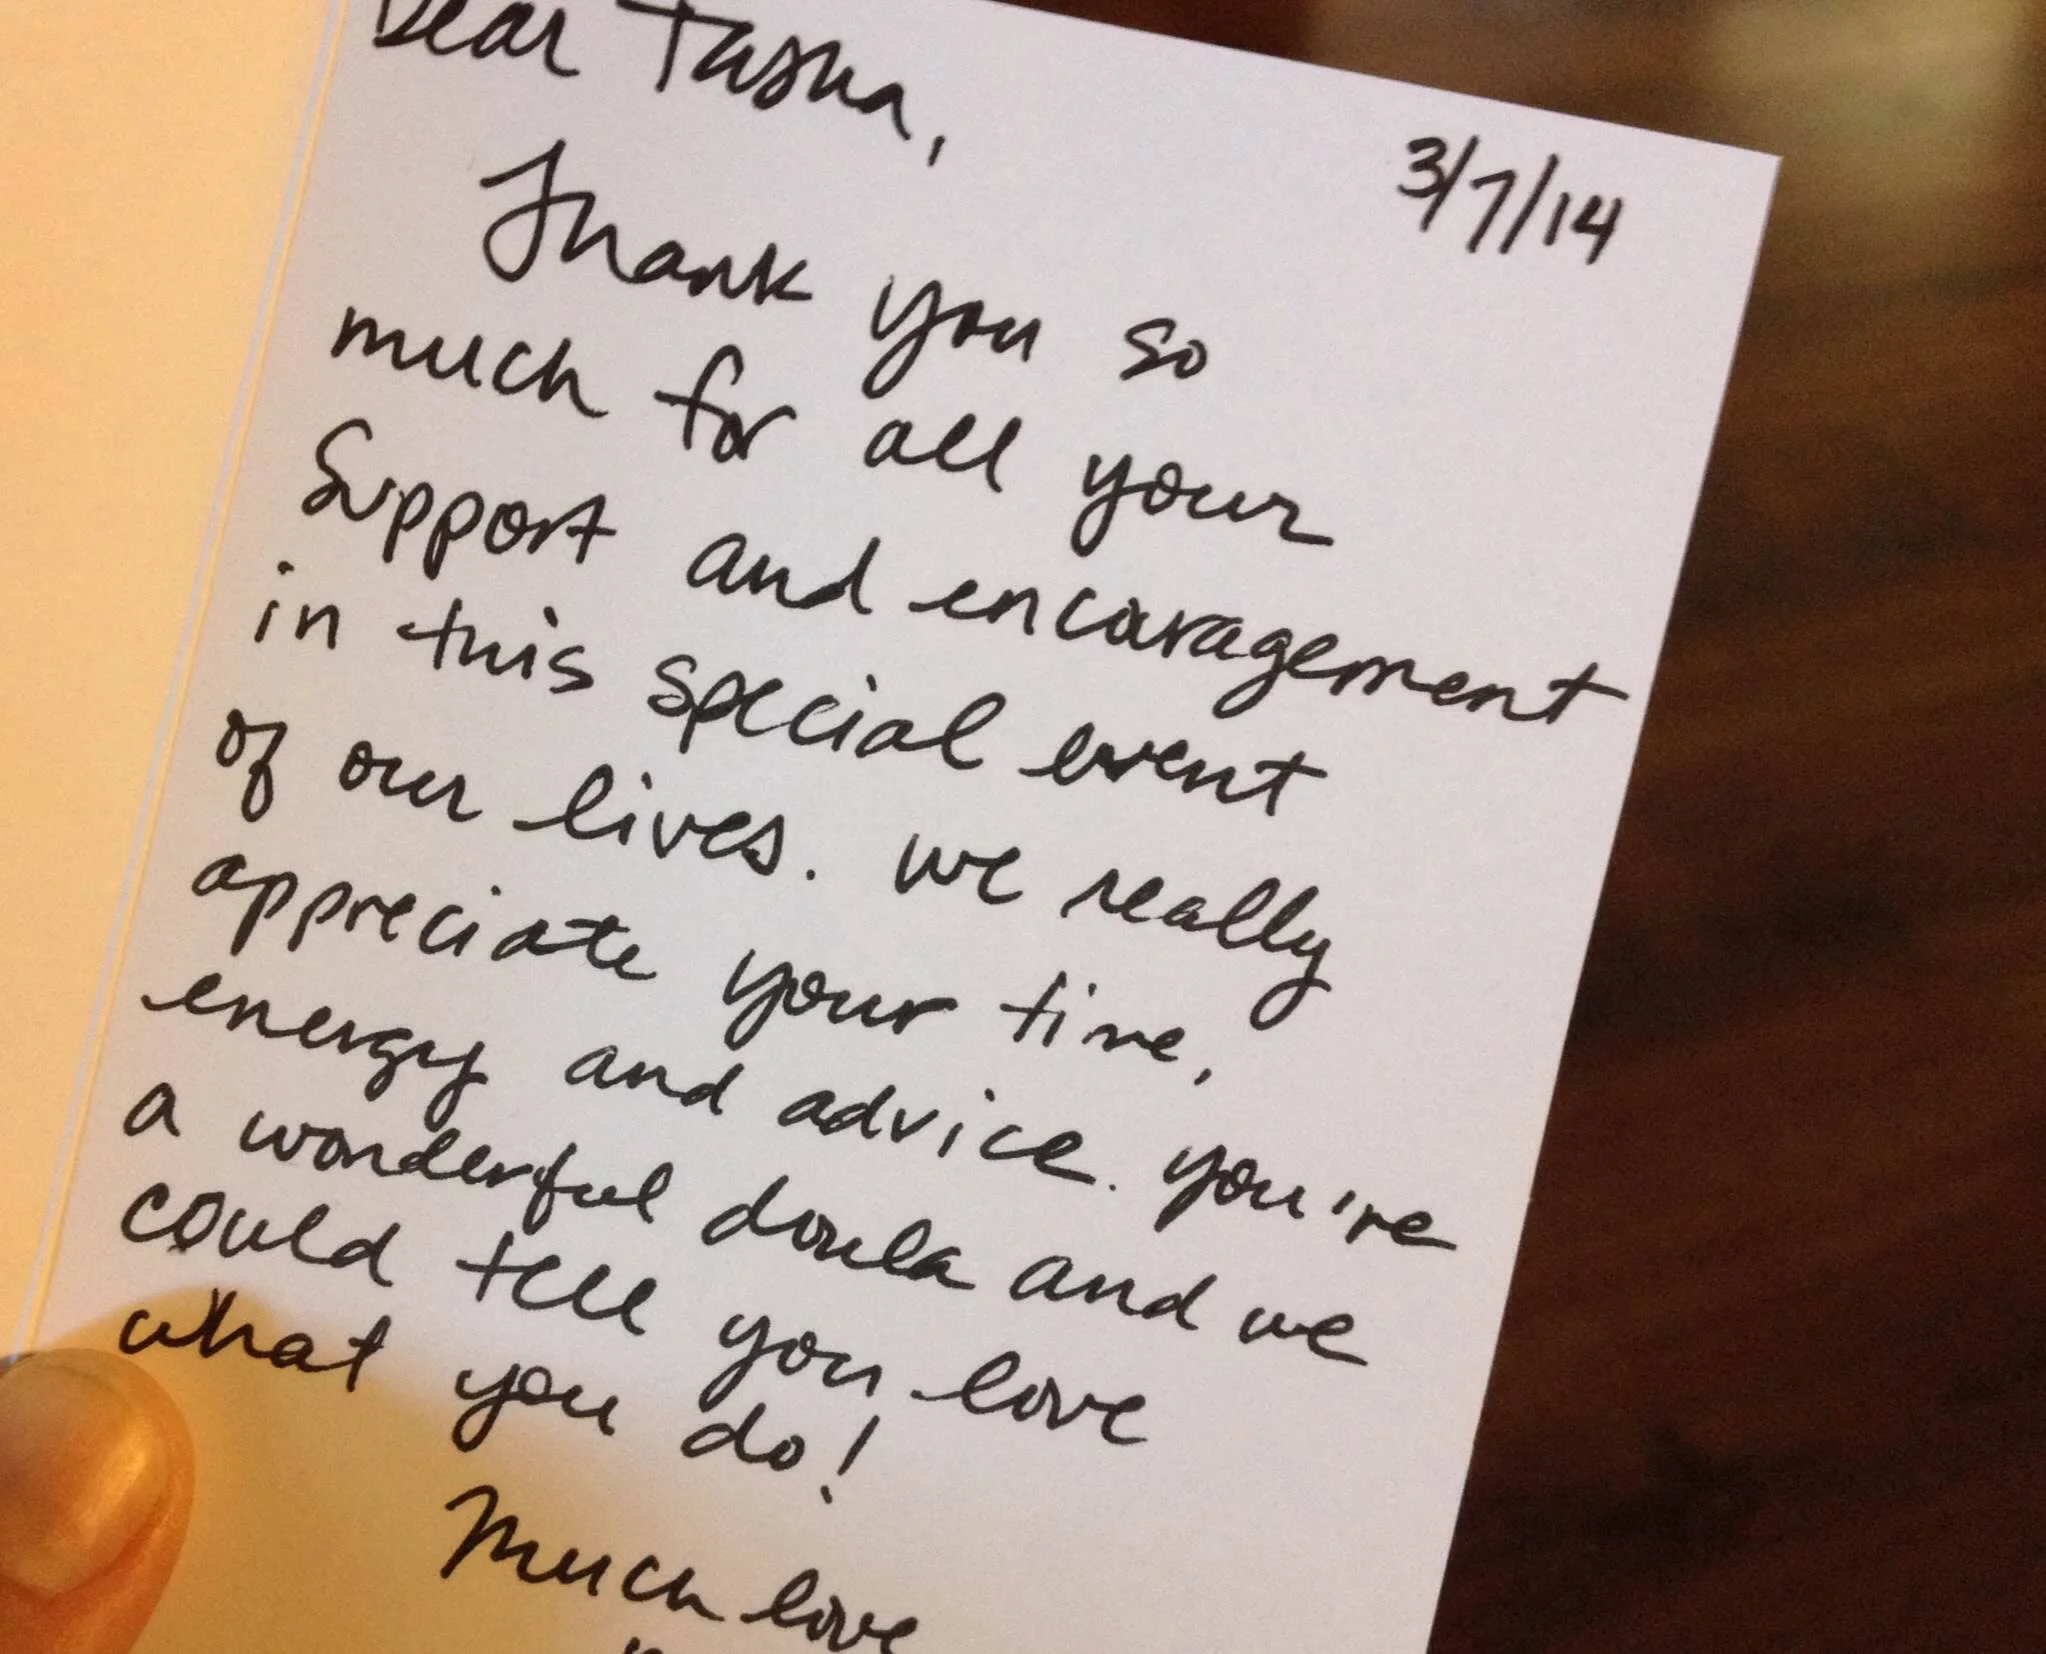 Dear Tasha,
3/7/14
Thank you so
much for all your
Support and encouragement
in this special event
of our lives. we really
appreciate your time,
energy and advice. you're
a wonderful doula and we
could tell you love
what you do!
Much love